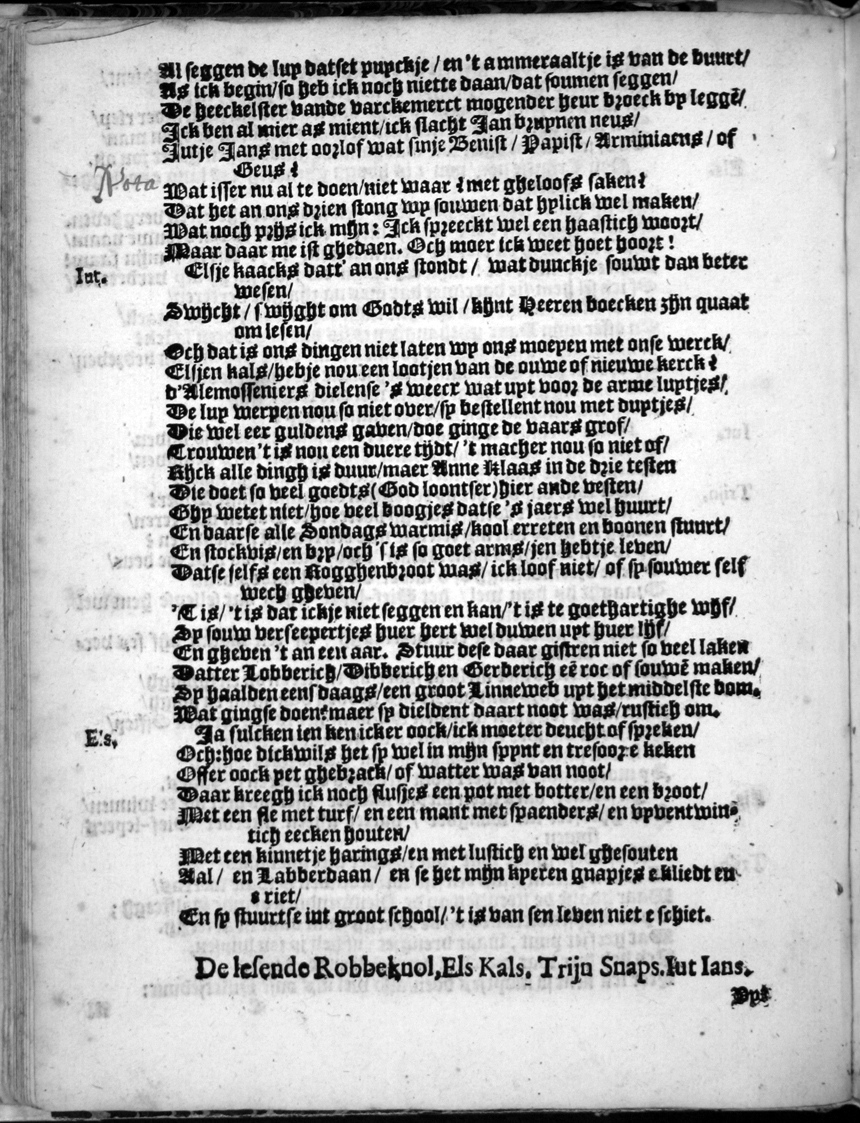 Al seggen de luy datset puyckje / en 't ammeraaltje is van de buurt/
As ick begin/so heb ick noch niette daan/dat soumen seggen/
De heeckelster vande varckemerct mogender heur broeck by leggē/
Ick ben al mier as mient/ick slacht Jan bruynen neus/
Jutje Jans met oorlof wat sinje Benist / Papist / Arminiaens / of
Geus?
Nota
Wat isser nu al te doen/niet waar? met gheloofs saken?
Dat het an ons drien stong wy souwen dat hylick wel maken/
Wat noch prijs ick mijn: Ick spreeckt wel een haastich woort/
Maar daar me ist ghedaen. Och moer ick weet hoet hoort!
Iut.
Elsje kaacks datt' an ons stondt / wat dunckje souwt dan beter
wesen/
Swijcht / swijght om Godts wil / kijnt Heeren boecken zijn quaat
om lesen/
Och dat is ons dingen niet laten wy ons moeyen met onse werck/
Elsjen kals/hebje nou een lootjen van de ouwe of nieuwe kerck?
d'Alemosseniers dielense 's weecx wat uyt voor de arme luytjes/
De luy werpen nou so niet over/sy bestellent nou met duytjes/
Die wel eer guldens gaven/doe ginge de vaars grof/
Trouwen 't is nou een duere tijdt/ 't macher nou so niet of/
Kijck alle dingh is duur/maer Anne Klaas in de drie testen
Die doet so veel goedts (God loontser) hier ande vesten/
Ghy wetet niet/hoe veel boogjes datse 's jaers wel huurt/
En daarse alle Sondags warmis/kool erreten en boonen stuurt/
En stockvis/en bry/och 's is so goet arms/jen hebtje leven/
Datse selfs een Rogghenbroot was/ ick loof niet/ of sy souwer self
wech gheven/
'T is/ 't is dat ickje niet seggen en kan/'t is te goethartighe wijf/
Sy souw verseepertjes huer hert wel duwen uyt huer lijf/
En gheven 't an een aar. Stuur dese daar gistren niet so veel laken
Datter Lobberich/Dibberich en Gerderich eē roc of souwē maken/
Sy haalden eens daags/een groot Linneweb uyt het middelste bom.
Wat gingse doen? maer sy dieldent daart noot was/rustich om.
Els.
Ja sulcken ien ken icker oock/ick moeter deucht of spreken/
Och: hoe dickwils het sy wel in mijn spynt en tresoore keken
Offer oock yet ghebrack/of watter was van noot/
Daar kreegh ick noch flusjes een pot met botter/en een broot/
Met een sle met turf/ en een mant met spaenders/ en vyventwin-
tich eecken houten/
Met een kinnetje harings/en met lustich en wel ghesouten
Aal/ en Labberdaan / en se het mijn kyeren gnapjes e kliedt en
e riet/
En sy stuurtse int groot school/'t is van sen leven niet e schiet.
De lesende Robbeknol, Els Kals. Trijn Snaps. Iut Ians.
Uyt